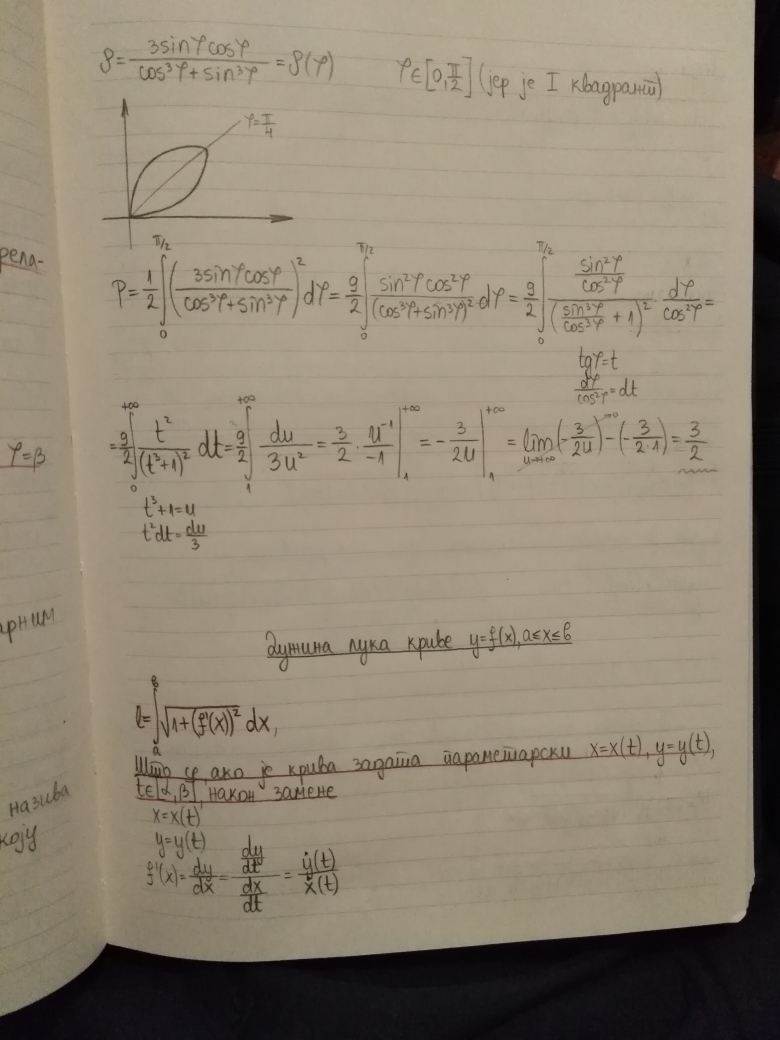 ρ = 3sinφcosφ / (cos³φ+sin³φ) = ρ(φ)   φ∈[0, π/2] (јер је I квадрант)
φ = π/4
рела-
P = 1/2 ∫₀^(π/2) (3sinφcosφ / (cos³φ+sin³φ))² dφ = 9/2 ∫₀^(π/2) sin²φcos²φ / (cos³φ+sin³φ)² dφ = 9/2 ∫₀^(π/2) (sin²φ/cos²φ) / (sin³φ/cos³φ + 1)² · dφ/cos²φ =
tgφ=t
dφ/cos²φ = dt
= 9/2 ∫₀^(+∞) t²/(t³+1)² dt = 9/2 ∫₁^(+∞) du/3u² = 3/2 · u⁻¹/-1 |₁^(+∞) = -3/2u |₁^(+∞) = lim u→+∞ (-3/2u)→0 - (-3/2·1) = 3/2
φ=β
t³+1=u
t²dt = du/3
арним
Дужина лука криве y=f(x), a≤x≤b
l = ∫ₐᵇ √(1+(f'(x))²) dx,
Што се, ако је крива задата параметарски x=x(t), y=y(t),
t∈[α,β], након замене
назива
коју
x=x(t)
y=y(t)
f'(x) = dy/dx = (dy/dt)/(dx/dt) = ẏ(t)/ẋ(t)